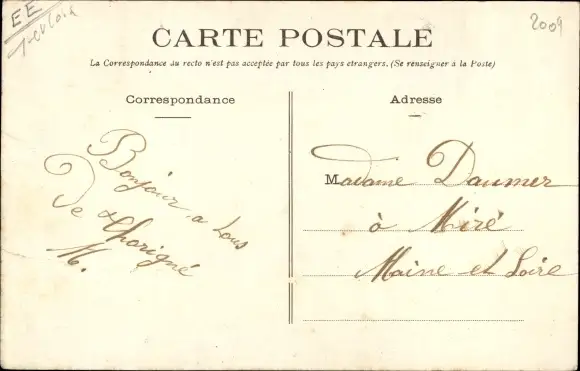 EE
2009
CARTE POSTALE
La Correspondance au recto n'est pas acceptée par tous les pays etrangers. (Se renseigner à la Poste)
Correspondance
Bonjour a tous
De Chorigné
M.
Adresse
Madame Daumer
à Miré
Maine et Loire